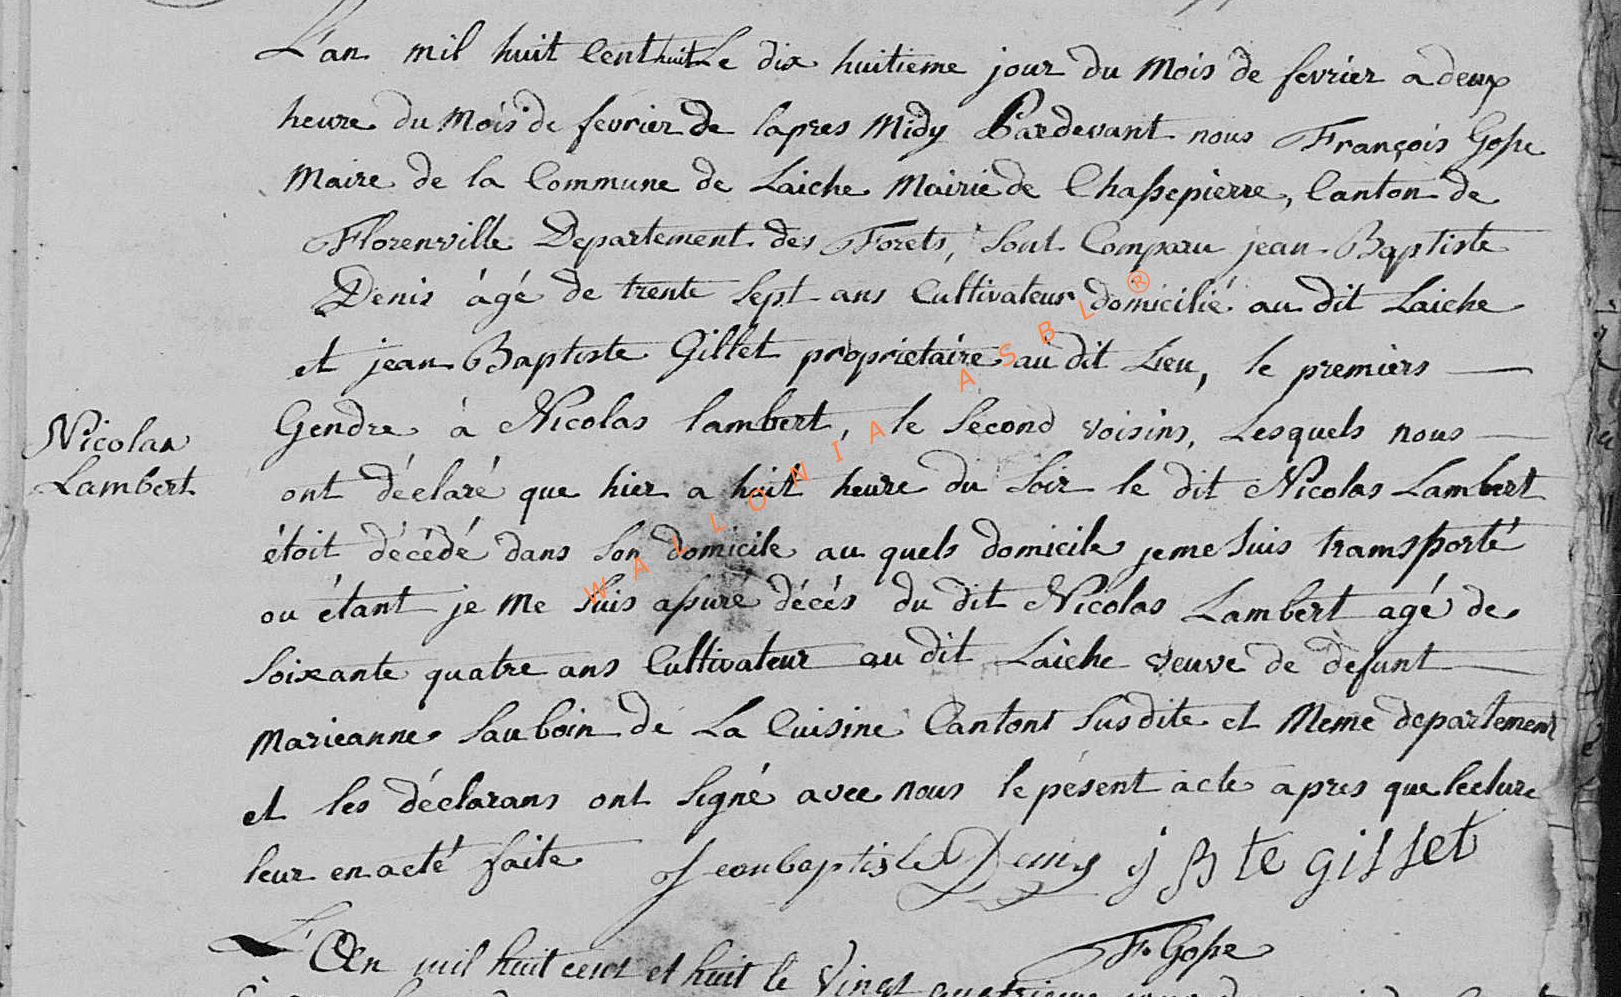 L'an mil huit Cent huit Le dix huitieme jour du Mois de fevrier a deux
heure du Mois de fevrier de lapres Midy Pardevant nous François Gosse
Maire de la Commune de Laiche Mairie de Chassepierre, Canton de
Florenville Departement des Forets, Sont Comparu jean Baptiste
Denis âgé de trente Sept ans Cultivateur domicilié au dit Laiche
et jean Baptiste Gillet proprietaire au dit Lieu, le premiers
Gendre à Nicolas Lambert, le Second voisins, Lesquels nous
Nicolas
Lambert
ont déclaré que hier a huit heure du Soir le dit Nicolas Lambert
étoit décédé dans Son domicile au quels domicile je me Suis transporté
ou étant je Me Suis assuré décés du dit Nicolas Lambert agé de
Soixante quatre ans Cultivateur au dit Laiche veuve de defunt
Marieanne Sauboin de La Cuisine Cantont Susdite et Meme departement
et les déclarans ont Signé avec nous le pésent acte apres que lecture
leur en acté faite Jeanbaptiste Denis j B te gillet
F. Gosse
L'An mil huit cent et huit le Vingt quatrieme
WALLONIA ASBL ®